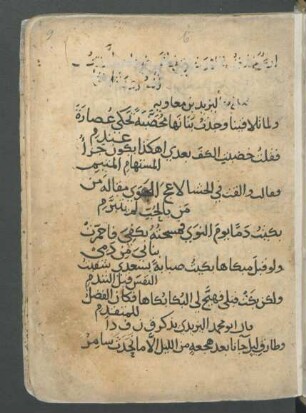 ليزيد بن معاوية
ولما تلاقينا وجدت بنانها مخضبة تحكي عصارة
عندم
فقلت خضبت الكف بعدي اهكذا يكون جزا
المستهام المتيم
فقالت والقت في الحشا لاعج الجوى مقالة من
من بالحب لم يتبرم
بكيت دما يوم النوى فمسحته بكفي فاحمرت
بناني من دمي
ولو قبل مبكاها بكيت صبابة بسعدى شفيت
النفس قبل التندم
ولكن بكت قبلي فهيج لي البكا بكاها فكان الفضل
للمتقدم
قال ابو محمد اليزيدي يذكر
وطارق ليل جانا بعد هجعة من الليل الا ما تحدث سامر